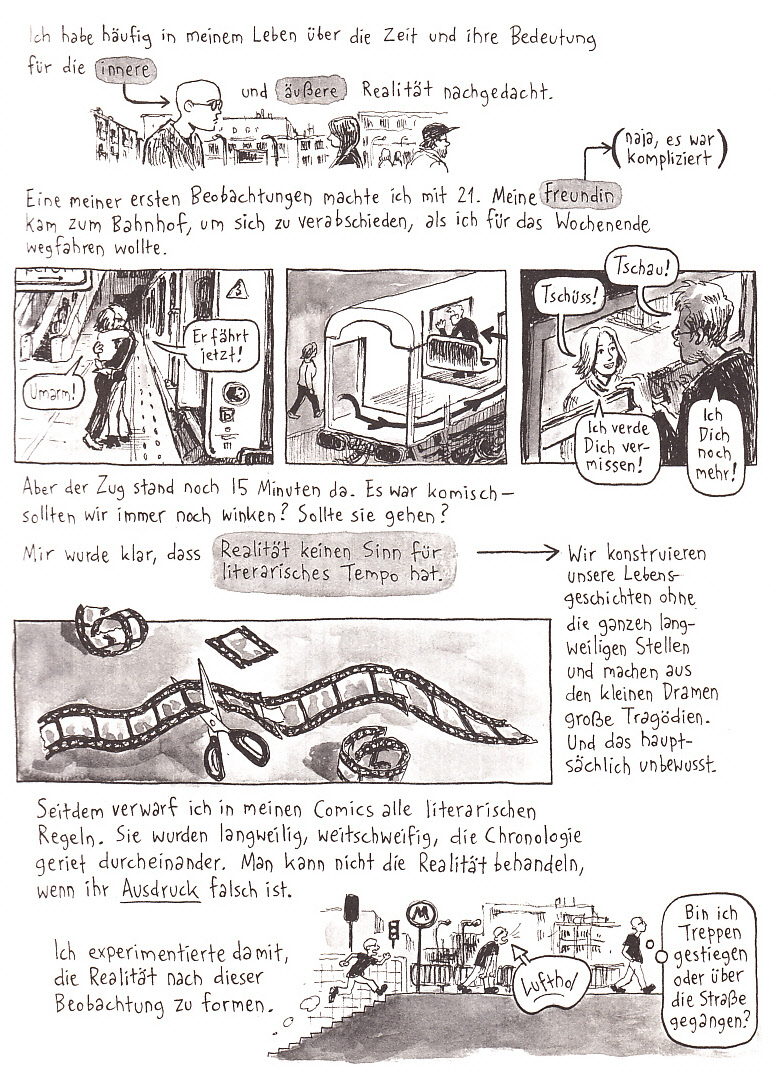 Ich habe häufig in meinem Leben über die Zeit und ihre Bedeutung
für die innere
und äußere Realität nachgedacht.
(naja, es war
kompliziert)
Eine meiner ersten Beobachtungen machte ich mit 21. Meine Freundin
kam zum Bahnhof, um sich zu verabschieden, als ich für das Wochenende
wegfahren wollte.
Er fährt
jetzt!
Umarm!
Tschau!
Tschüss!
Ich verde
Dich ver-
missen!
Ich
Dich
noch
mehr!
Aber der Zug stand noch 15 Minuten da. Es war komisch –
sollten wir immer noch winken? Sollte sie gehen?
Mir wurde klar, dass Realität keinen Sinn für
literarisches Tempo hat.
Wir konstruieren
unsere Lebens-
geschichten ohne
die ganzen lang-
weiligen Stellen
und machen aus
den kleinen Dramen
große Tragödien.
Und das haupt-
sächlich unbewusst.
Seitdem verwarf ich in meinen Comics alle literarischen
Regeln. Sie wurden langweilig, weitschweifig, die Chronologie
geriet durcheinander. Man kann nicht die Realität behandeln,
wenn ihr Ausdruck falsch ist.
Ich experimentierte damit,
die Realität nach dieser
Beobachtung zu formen.
M
Lufthol
Bin ich
Treppen
gestiegen
oder über
die Straße
gegangen?